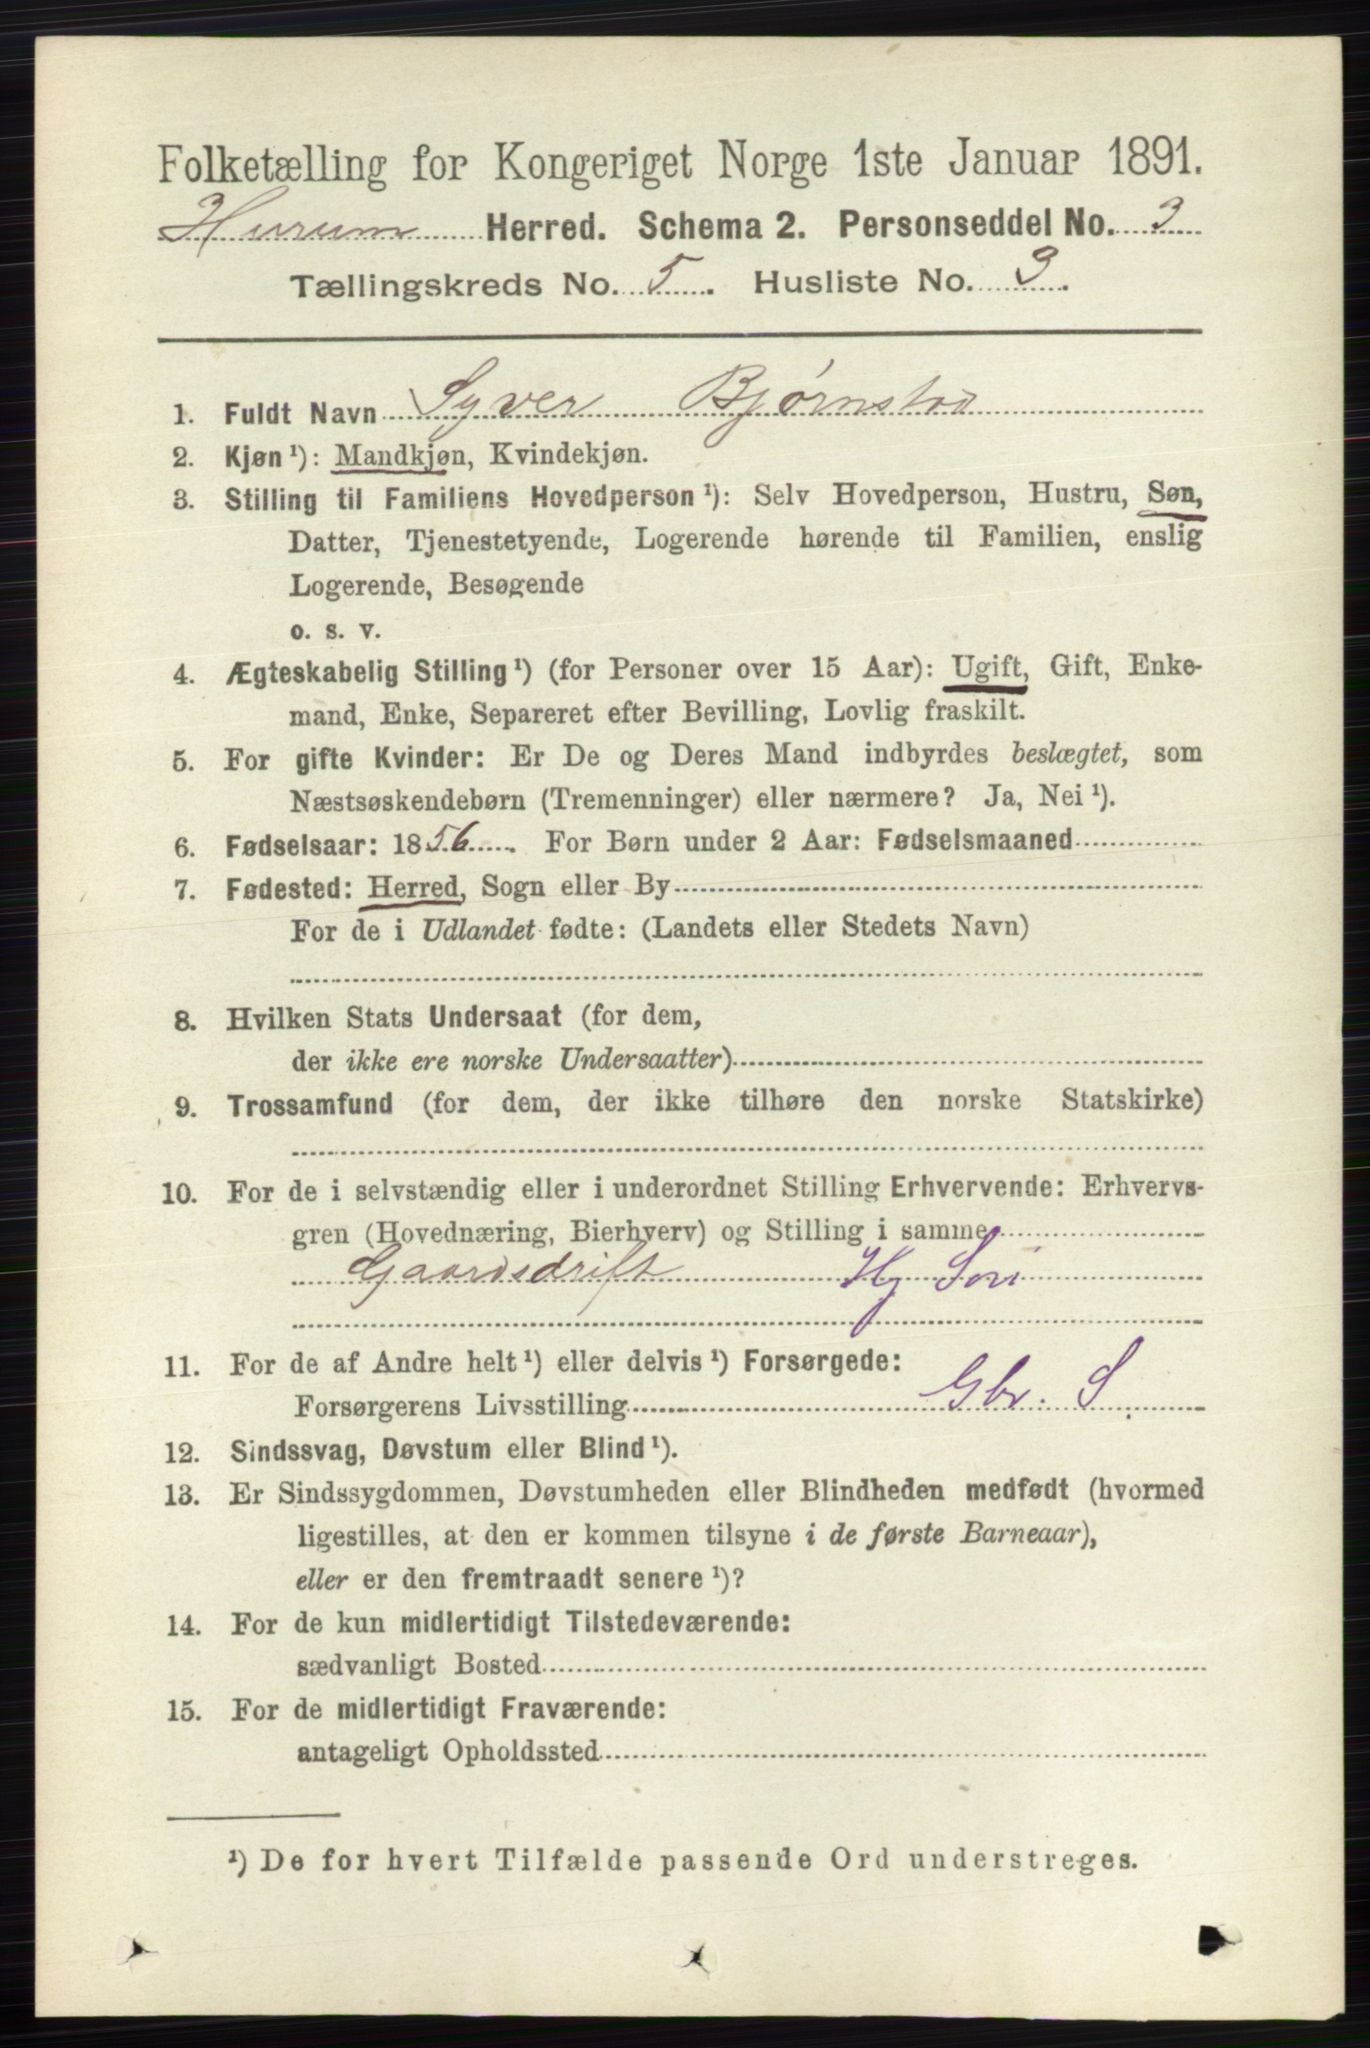 Folketælling for Kongeriget Norge 1ste Januar 1891.
Hurum Herred. Schema 2. Personseddel No. 3
Tællingskreds No. 5. Husliste No. 3.
1. Fuldt Navn Syver Bjørnstad
2. Kjøn ¹): Mandkjøn, Kvindekjøn.
3. Stilling til Familiens Hovedperson ¹): Selv Hovedperson, Hustru, Søn,
Datter, Tjenestetyende, Logerende hørende til Familien, enslig
Logerende, Besøgende
o. s. v.
4. Ægteskabelig Stilling ¹) (for Personer over 15 Aar): Ugift, Gift, Enke-
mand, Enke, Separeret efter Bevilling, Lovlig fraskilt.
5. For gifte Kvinder: Er De og Deres Mand indbyrdes beslægtet, som
Næstsøskendebørn (Tremenninger) eller nærmere? Ja, Nei ¹).
6. Fødselsaar: 1856. For Børn under 2 Aar: Fødselsmaaned
7. Fødested: Herred, Sogn eller By
For de i Udlandet fødte: (Landets eller Stedets Navn)
8. Hvilken Stats Undersaat (for dem,
der ikke ere norske Undersaatter)
9. Trossamfund (for dem, der ikke tilhøre den norske Statskirke)
10. For de i selvstændig eller i underordnet Stilling Erhvervende: Erhvervs-
gren (Hovednæring, Bierhverv) og Stilling i samme
Gaardsdrift Hj Søn
11. For de af Andre helt ¹) eller delvis ¹) Forsørgede:
Forsørgerens Livsstilling Gbr. S.
12. Sindssvag, Døvstum eller Blind ¹).
13. Er Sindssygdommen, Døvstumheden eller Blindheden medfødt (hvormed
ligestilles, at den er kommen tilsyne i de første Barneaar),
eller er den fremtraadt senere ¹)?
14. For de kun midlertidigt Tilstedeværende:
sædvanligt Bosted
15. For de midlertidigt Fraværende:
antageligt Opholdssted
¹) De for hvert Tilfælde passende Ord understreges.